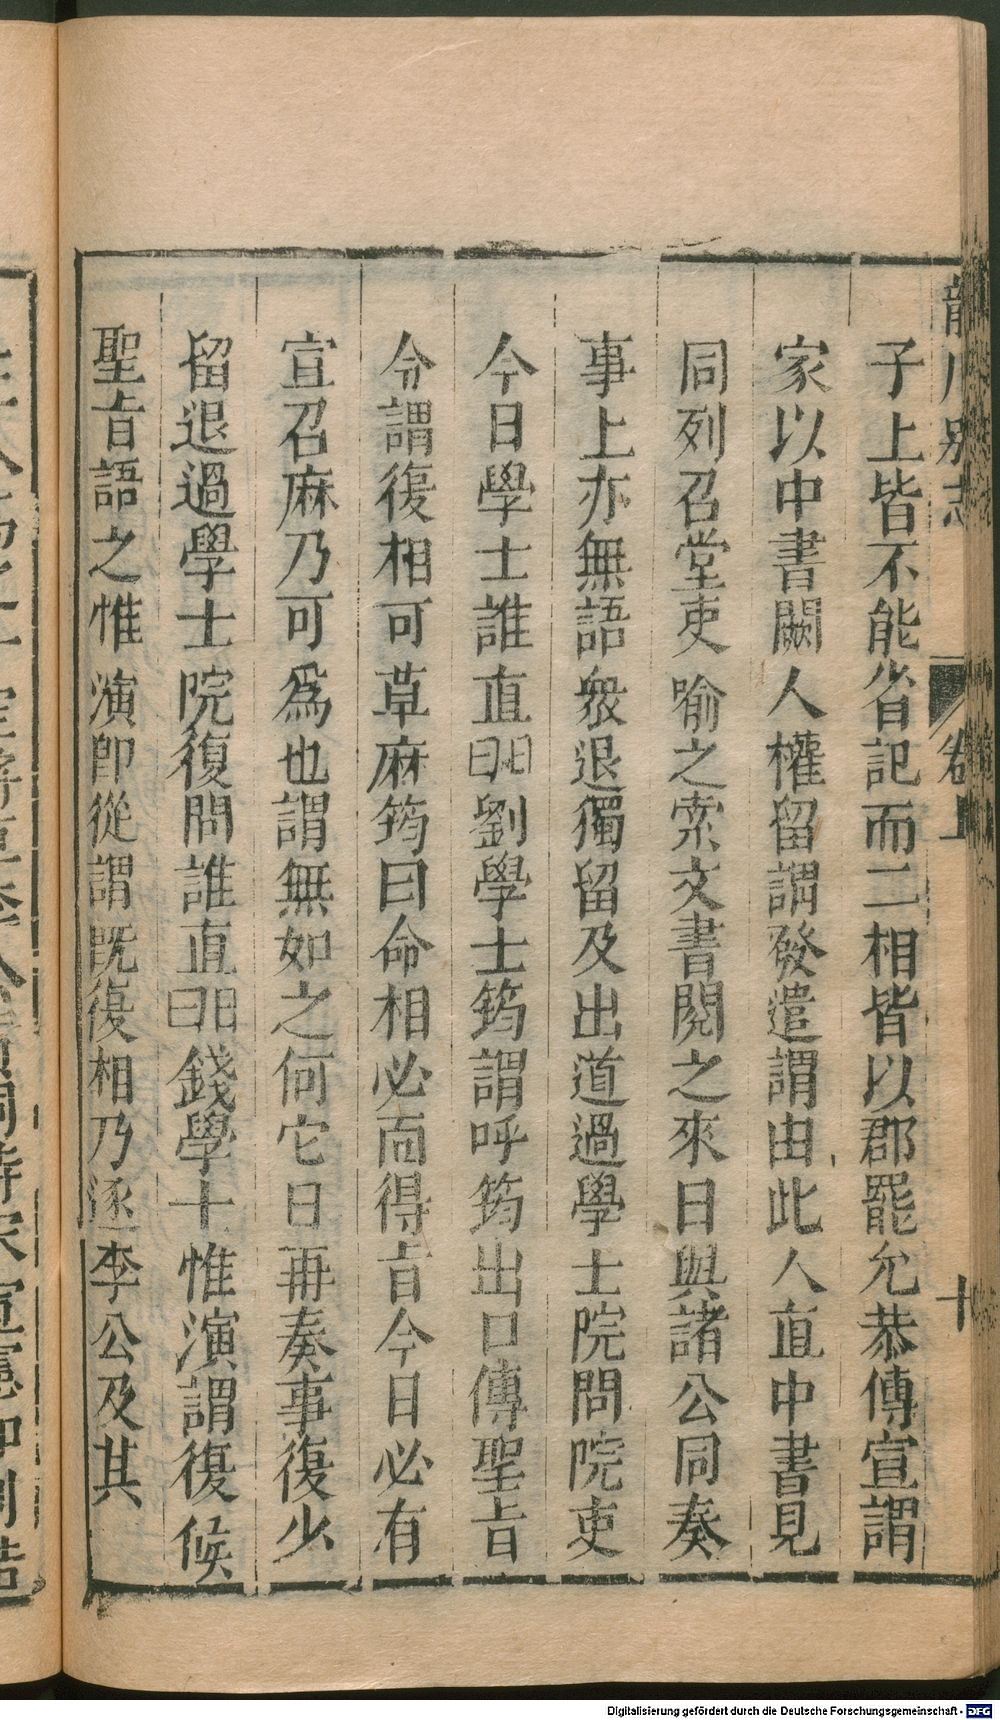 子上皆不能省記而二相皆以郡罷允恭傳宣謂
家以中書闕人權留謂發遣謂由此人直中書見
同列召堂吏喻之索文書閱之來日與諸公同奏
事上亦無語衆退獨留及出道過學士院問院吏
今日學士誰直曰劉學士筠謂呼筠出口傳聖旨
令謂復相可草麻筠曰命相必面得旨今日必有
宣召麻乃可爲也謂無如之何它日再奏事復少
留退過學士院復問誰直曰錢學士惟演謂復候
聖旨語之惟演卽從謂旣復相乃逐李公及其
龍川別志
卷上
十
Digitalisierung gefördert durch die Deutsche Forschungsgemeinschaft - DFG